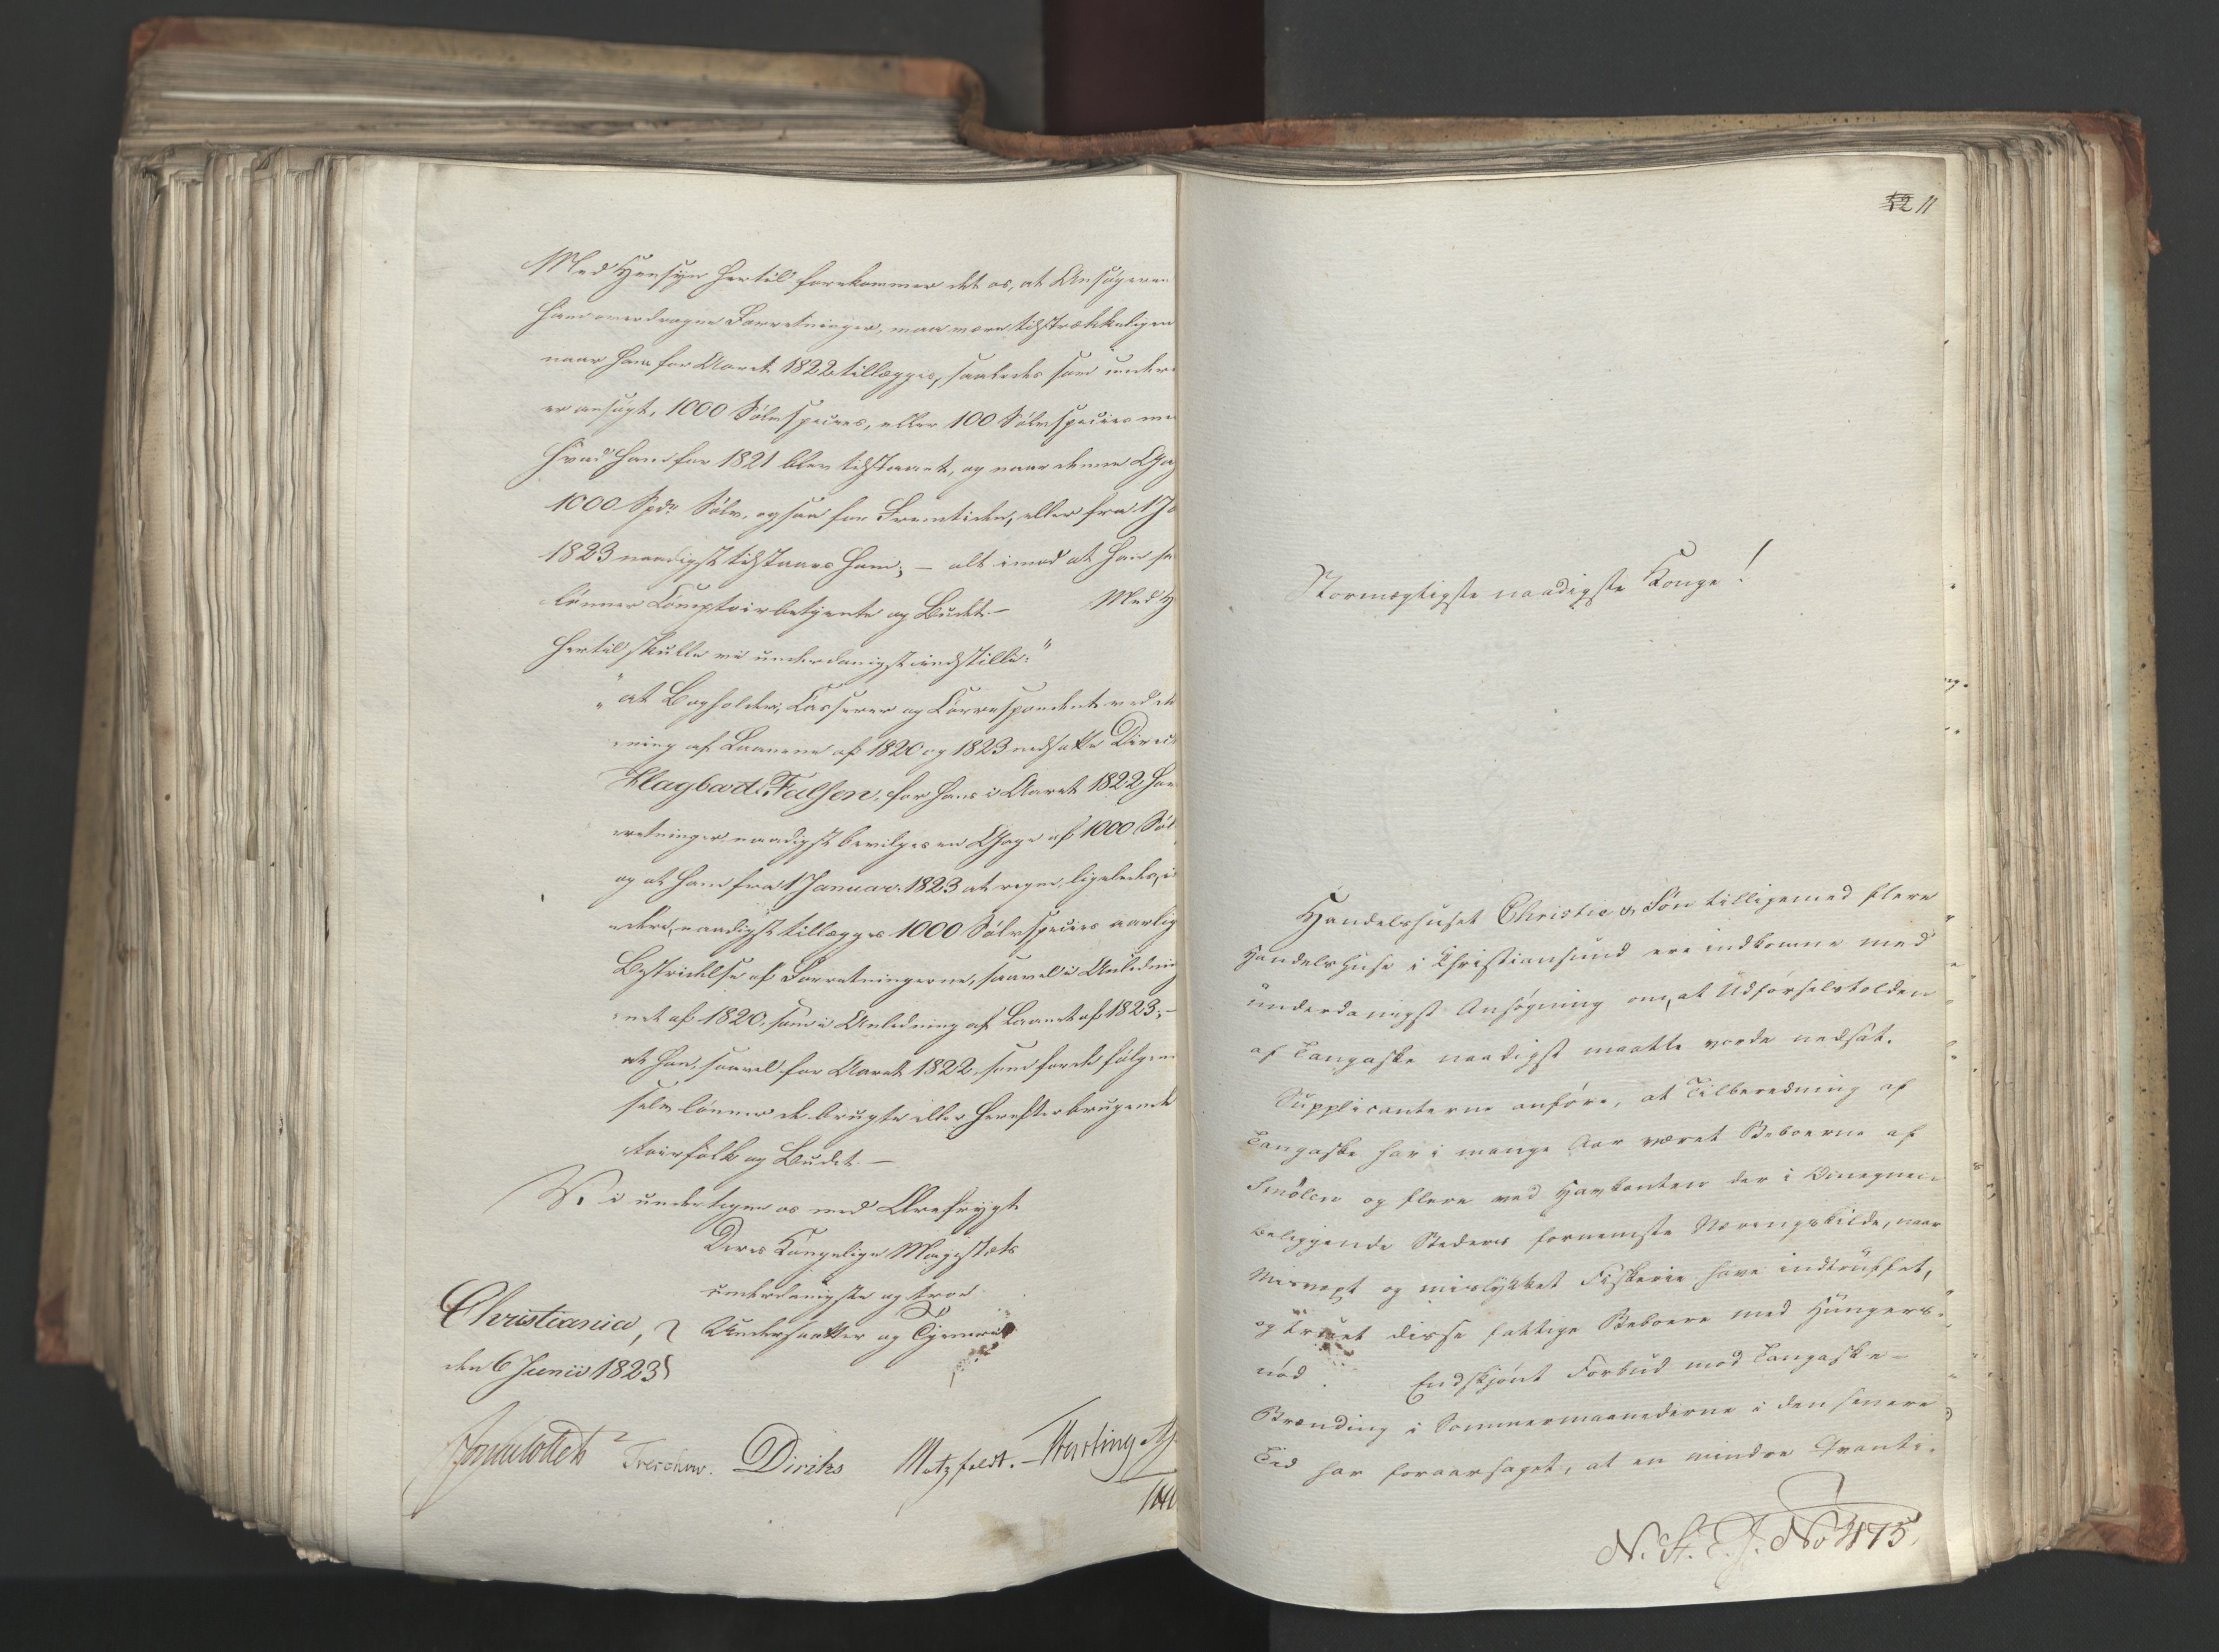 Med Hensyn hertil forekommer det os, at Ansøgeren
ham overdragne Forretninger, maa være tilstrækkeligen
naar ham for Aaret 1822 tillægges, saaledes som under
er ansøgt, 1000 Sølvspecies, eller 100 Sølvspecies me
hvad ham for 1821 blev tilstaaet, og naar denne Ga
1000 Spd. Sølv, ogsaa for Fremtiden, eller fra 1 Ja
1823 naadigst tilstaaes ham; – alt imod at han se
lønner Comptoirbetjente og Budet. – Med H
hertil skulle vi underdanigst indstille:"
"at Bogholder, Casserer og Correspondent ved de
ning af Laanene af 1820 og 1823 nedsatte Direct
Hagbart Falsen, for hans i Aaret 1822 hav
retninger, naadigst bevilges en Gage af 1000 Søl
og at ham fra 1 Januar 1823 at regne, ligeledes, i
dere, naadigst tillægges 1000 Sølvspecies aarlig
Bestridelse af Forretningerne, saavel i Anledning
net af 1820, som i Anledning af Laanet af 1823; –
at han, saavel for Aaret 1822, som for de følgen
selv lønner de brugte eller herefter brugende
toirfolk og Budet. –
Vi undertegne os med Ærefrygt
Deres Kongelige Majestæts
underdanigste og troe
Christiania, Undersaatter og Tjenere
den 6 Junii 1823
Treschow. Diriks Motzfeldt.
12 11
Stormægtigste naadigste Konge!
Handelshuset Christie & Søn tilligemed flere
Handelshuse i Christiansund ere indkomne med
underdanigst Ansøgning om, at Udførselstolden
af Tangaske naadigst maatte vorde nedsat.
Supplicanterne anføre, at Tilberedning af
Tangaske har i mange Aar været Beboerne af
Smølen og flere ved Havkanten der i Omegnen
beliggende Steders fornemste Næringskilde, naar
Misvext og mislykket Fiskerie have indtruffet,
og truet disse fattige Beboere med Hungers-
nød. Endskjønt Forbud mod Tangaske-
Brænding i Sommermaanederne i den senere
Tid har foraarsaget, at en mindre Qvanti-
N. St. C. J. No 475.